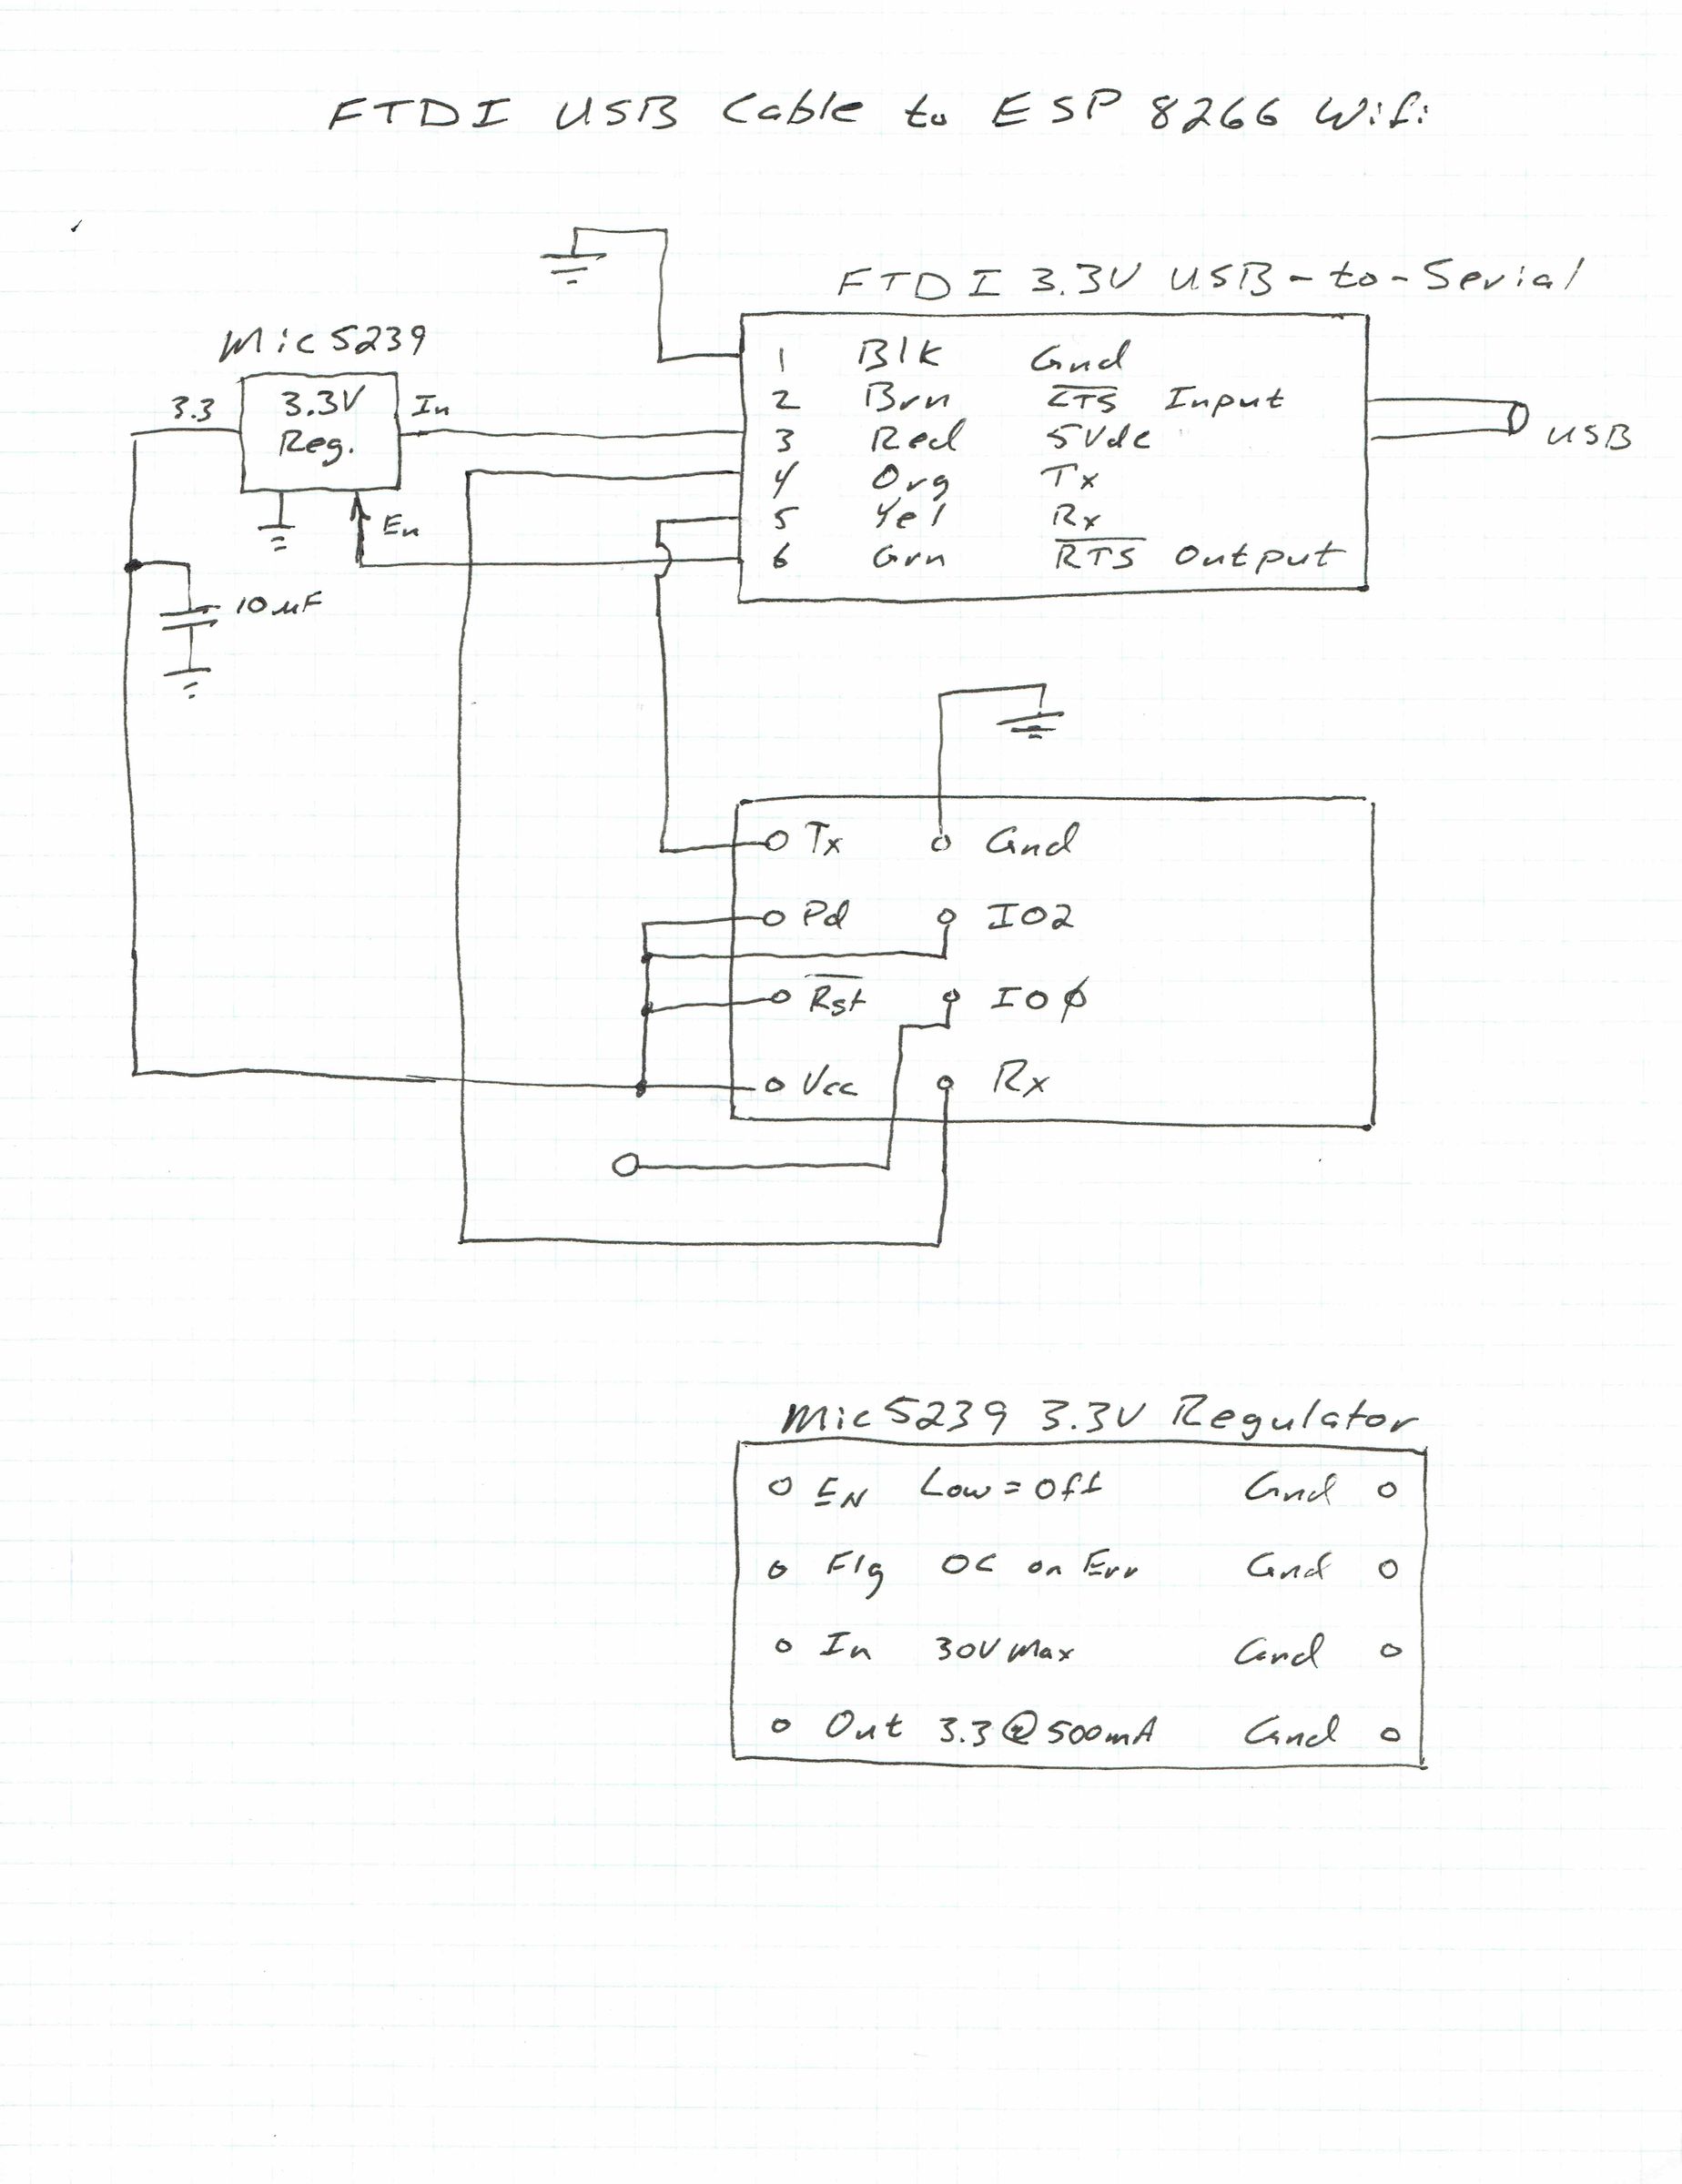 FTDI USB Cable to ESP 8266 Wifi
FTDI 3.3V USB-to-Serial
Mic5239
3.3
3.3V
Reg.
In
En
10µF
1 Blk Gnd
2 Brn CTS Input
3 Red 5Vdc
4 Org Tx
5 Yel Rx
6 Grn RTS Output
USB
Tx Gnd
Pd IO2
Rst IOØ
Vcc Rx
Mic5239 3.3V Regulator
EN Low=Off Gnd
Flg OC on Err Gnd
In 30V Max Gnd
Out 3.3@500mA Gnd